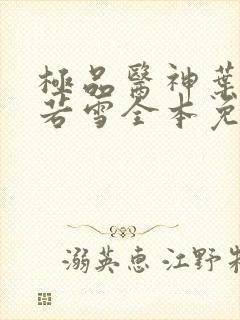 極品醫神葉
若雪全本免
溺英惠 江野牧